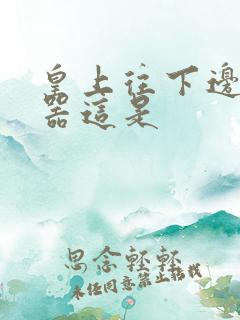 皇上往下邊
器這是
思念輕輕
未经同意禁止搭载